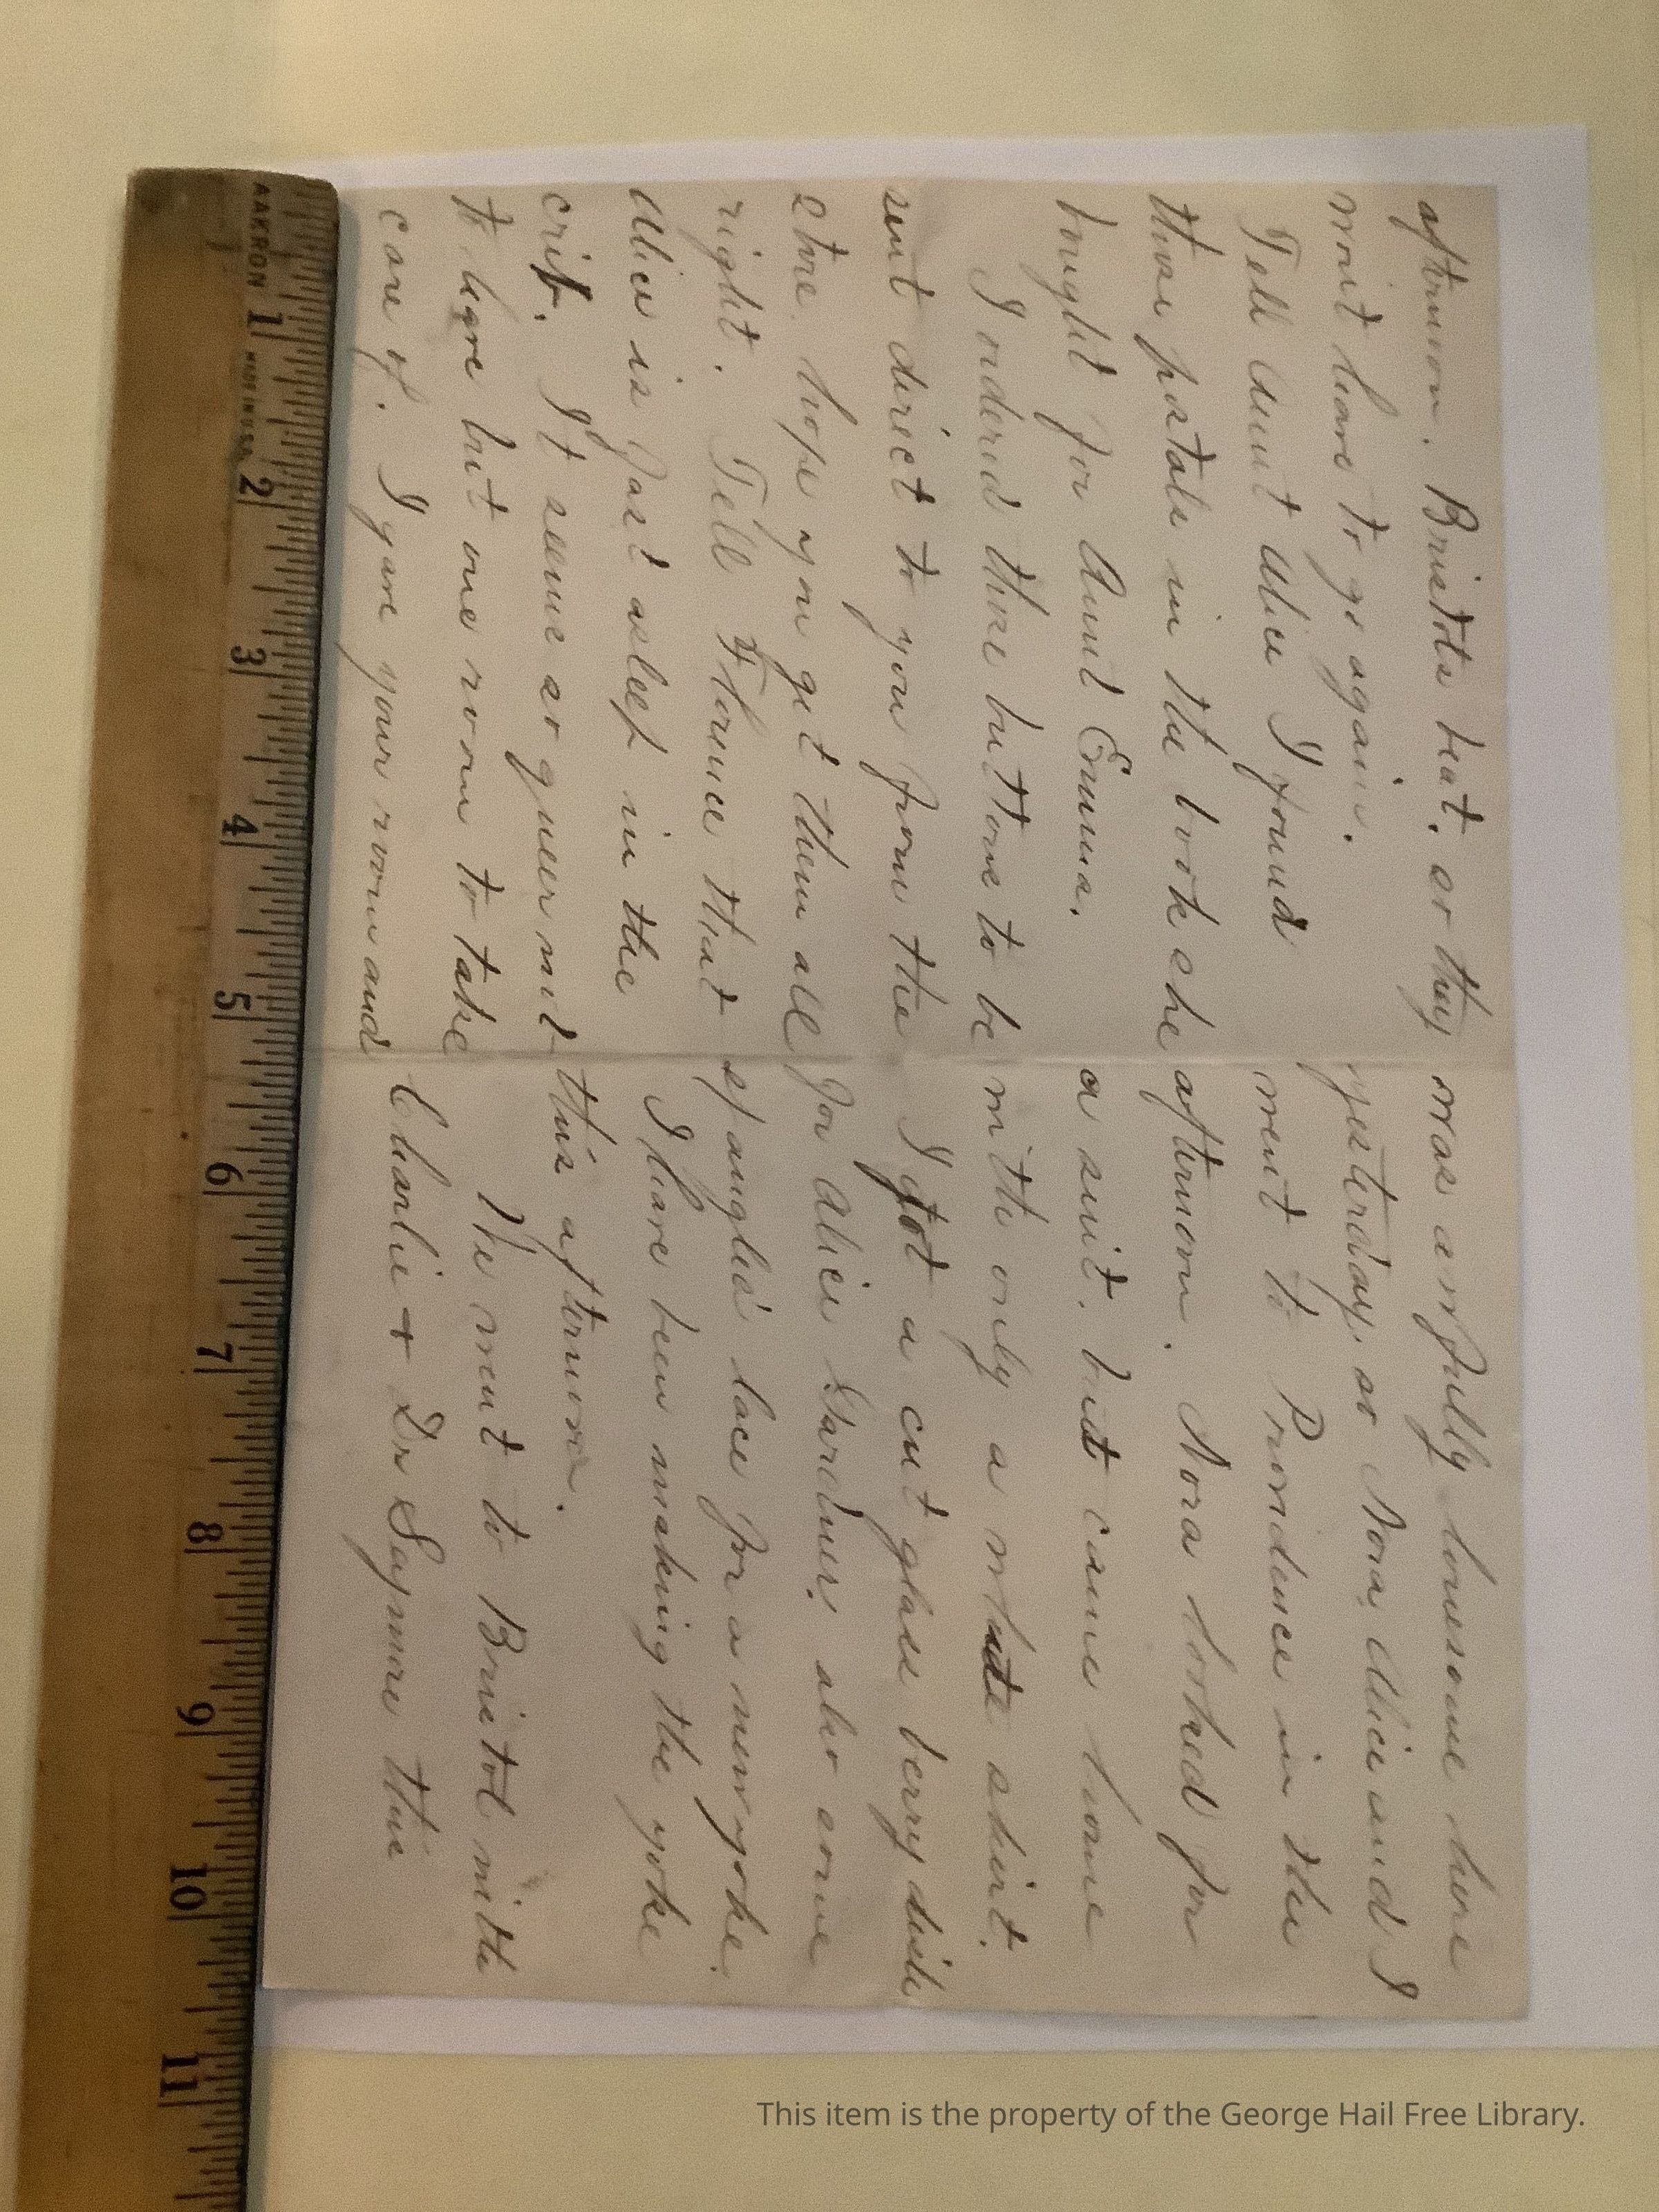 afternoon. Bristols beat. so they
wont have to go again.
Tell Aunt Alice I found
those postals in the book she
bought for Aunt Emma.
I ordered those buttons to be
sent direct to you from the
store. hope you get them all
right. Tell Florence that
Alice is fast asleep in the
crib. It seems so queer not
to have but one room to take
care of. I gave your room and
was awfully lonesome here
yesterday, so Nora, Alice and I
went to Providence in the
afternoon. Nora looked for
a suit. but came home
with only a white skirt.
I got a cut glass berry dish
for Alice Gardner. also some
spangled lace for a new yoke.
I have been making the yoke
this afternoon.
We went to Bristol with
Charlie + Dr Seymour this
AAKRON
MADE IN U.S.A.
1 2 3 4 5 6 7 8 9 10 11
This item is the property of the George Hail Free Library.